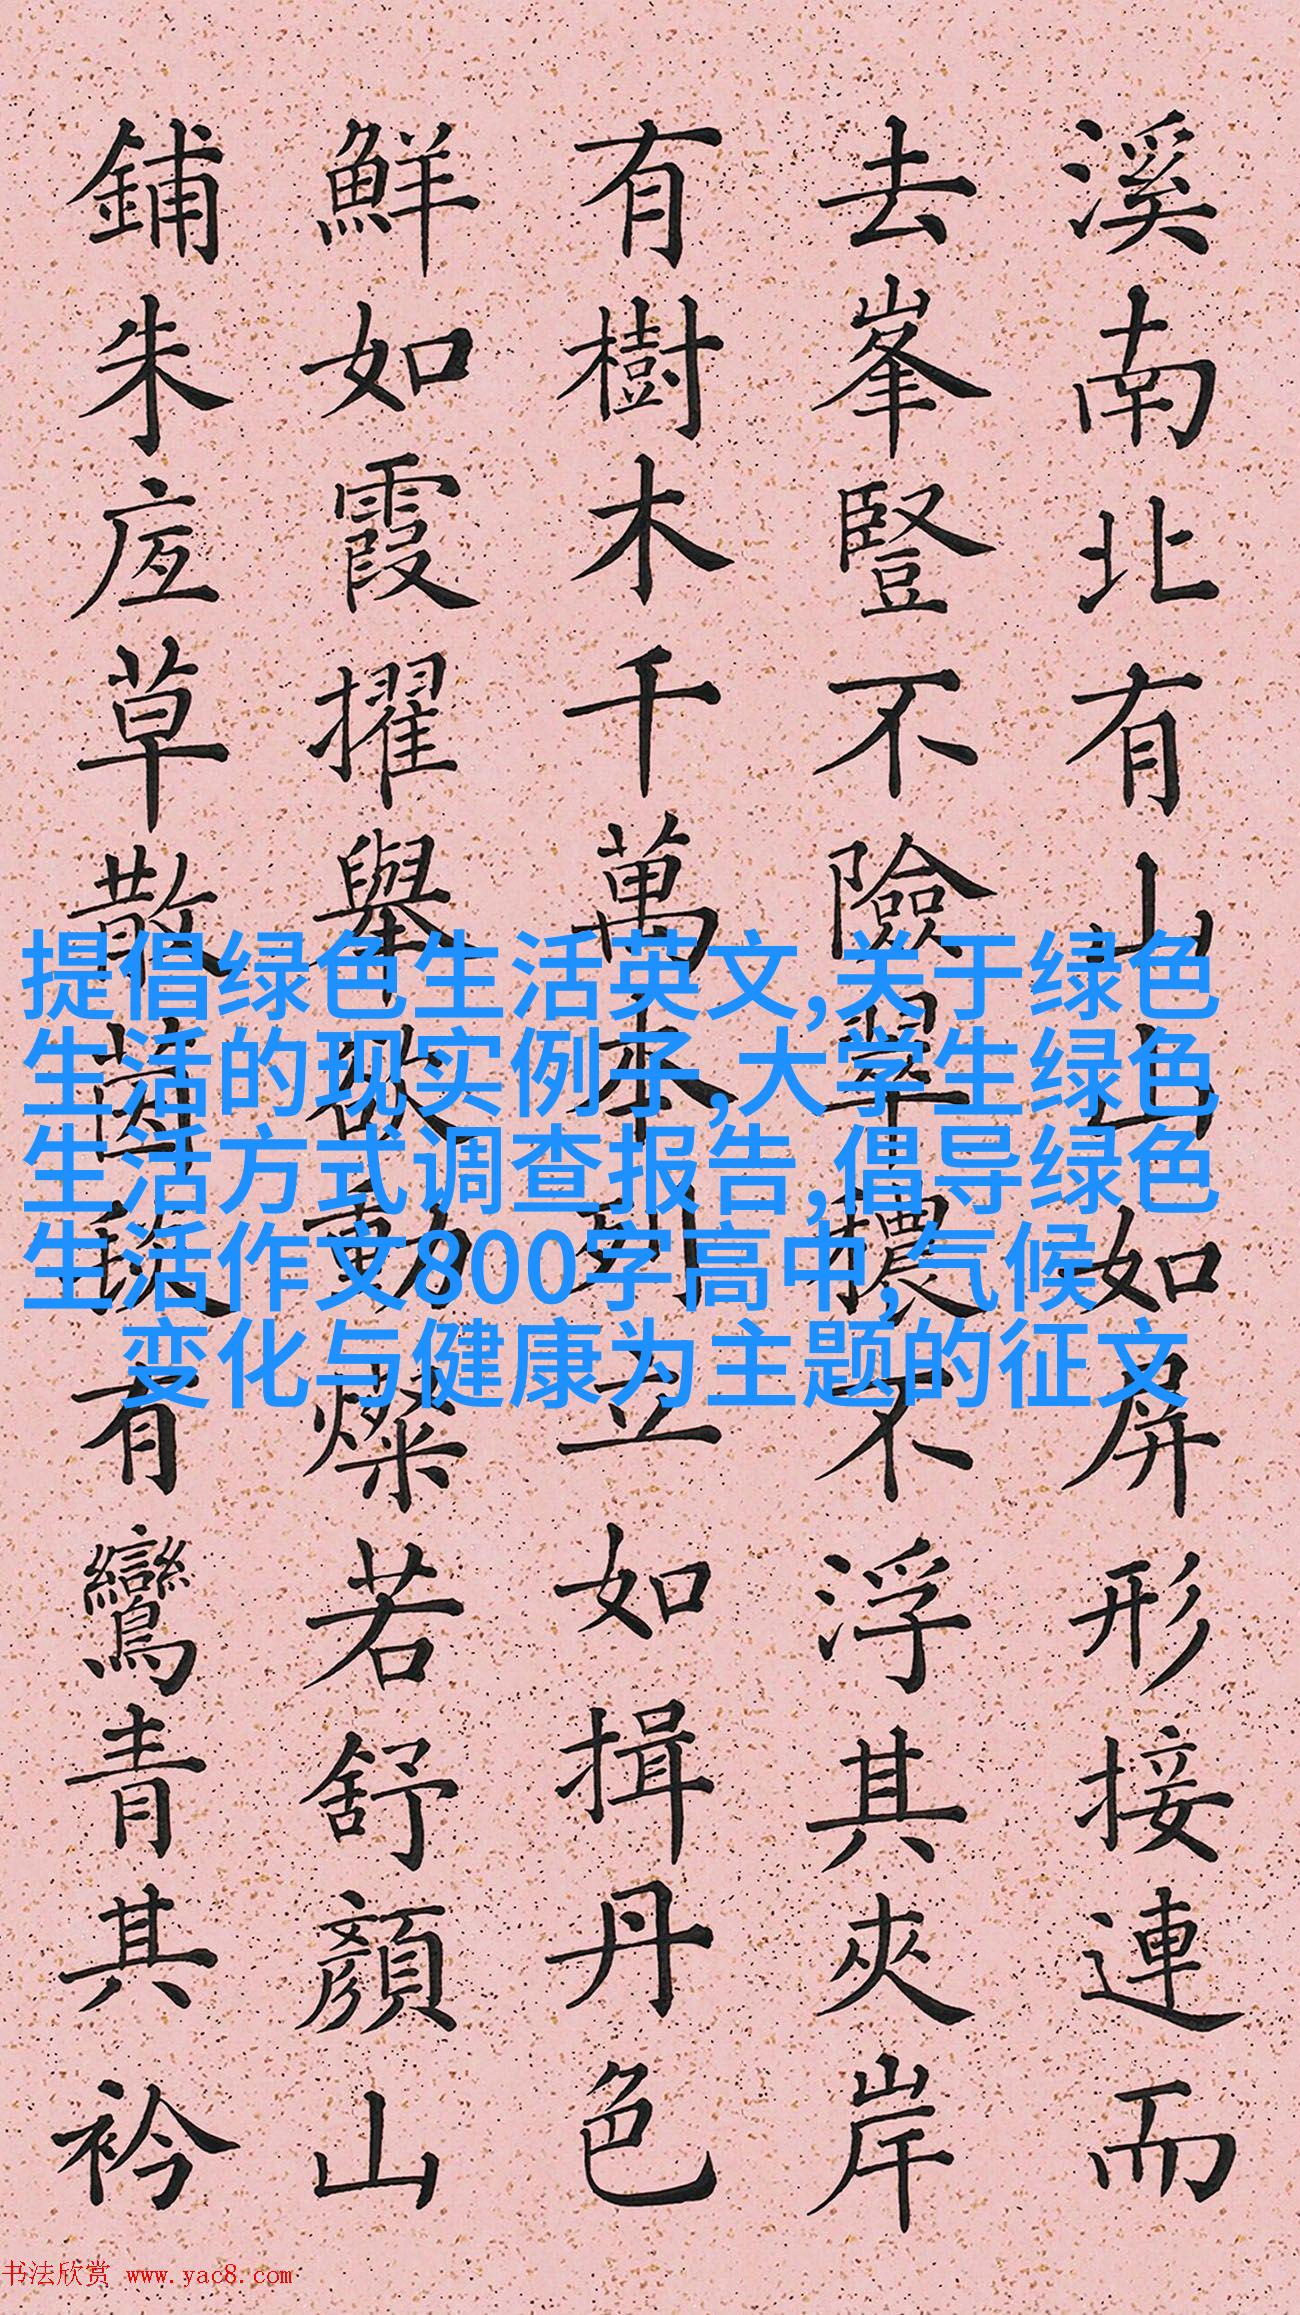 溪南北有山山如屏形接連而
去峯豎不險翠穠不浮其夾岸
有樹木千萬本列立如揖丹色
鮮如霞擢舉欲動燦若舒顏山
鋪朱底草散茵毯有鸞青其衿
提倡绿色生活英文,关于绿色
生活的现实例子,大学生绿色
生活方式调查报告,倡导绿色
生活作文800字高中,气候
变化与健康为主题的征文
书法欣赏 www.yac8.com